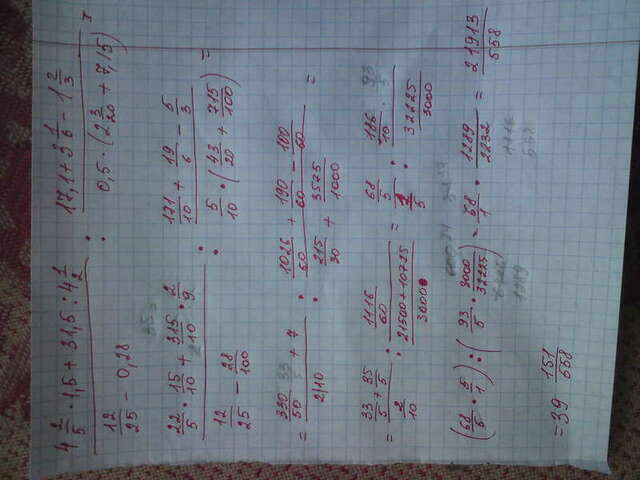 4 2/5 · 1,5 + 31,5 : 4 1/2 / 12/25 - 0,28 : 17,1 + 3 1/6 - 1 2/3 / 0,5 · (2 3/20 + 7,15) =
22/5 · 15/10 + 315/10 · 2/9 / 12/25 - 28/100 : 171/10 + 19/6 - 5/3 / 5/10 · (43/20 + 715/100) =
= 330/50 33/5 + 7 / 2/10 : 1026/60 + 190/60 - 100/60 / 215/30 + 3575/1000 =
= 33/5 + 35/5 / 2/10 : 1116/60 / 21500+10725/3000 = 68/5 / 1/5 : 186/10 · 93/5 / 32225/3000
(68/5 · 5/1) : (93/5 · 3000/32225) - 68/1 · 1289/2232 = 21913/558
1289 1116
558
= 39 151/558